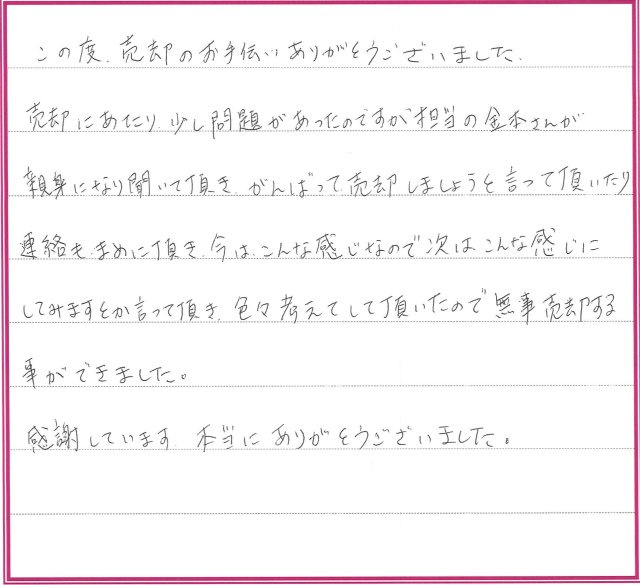 この度、売却のお手伝いありがとうございました。
売却にあたり、少し問題があったのですが担当の金本さんが
親身になり聞いて頂き、がんばって売却しましょうと言って頂いたり
連絡もまめに頂き、今は、こんな感じなので次は、こんな感じに
してみますとか言って頂き、色々考えてして頂いたので無事売却する
事ができました。
感謝しています。本当にありがとうございました。